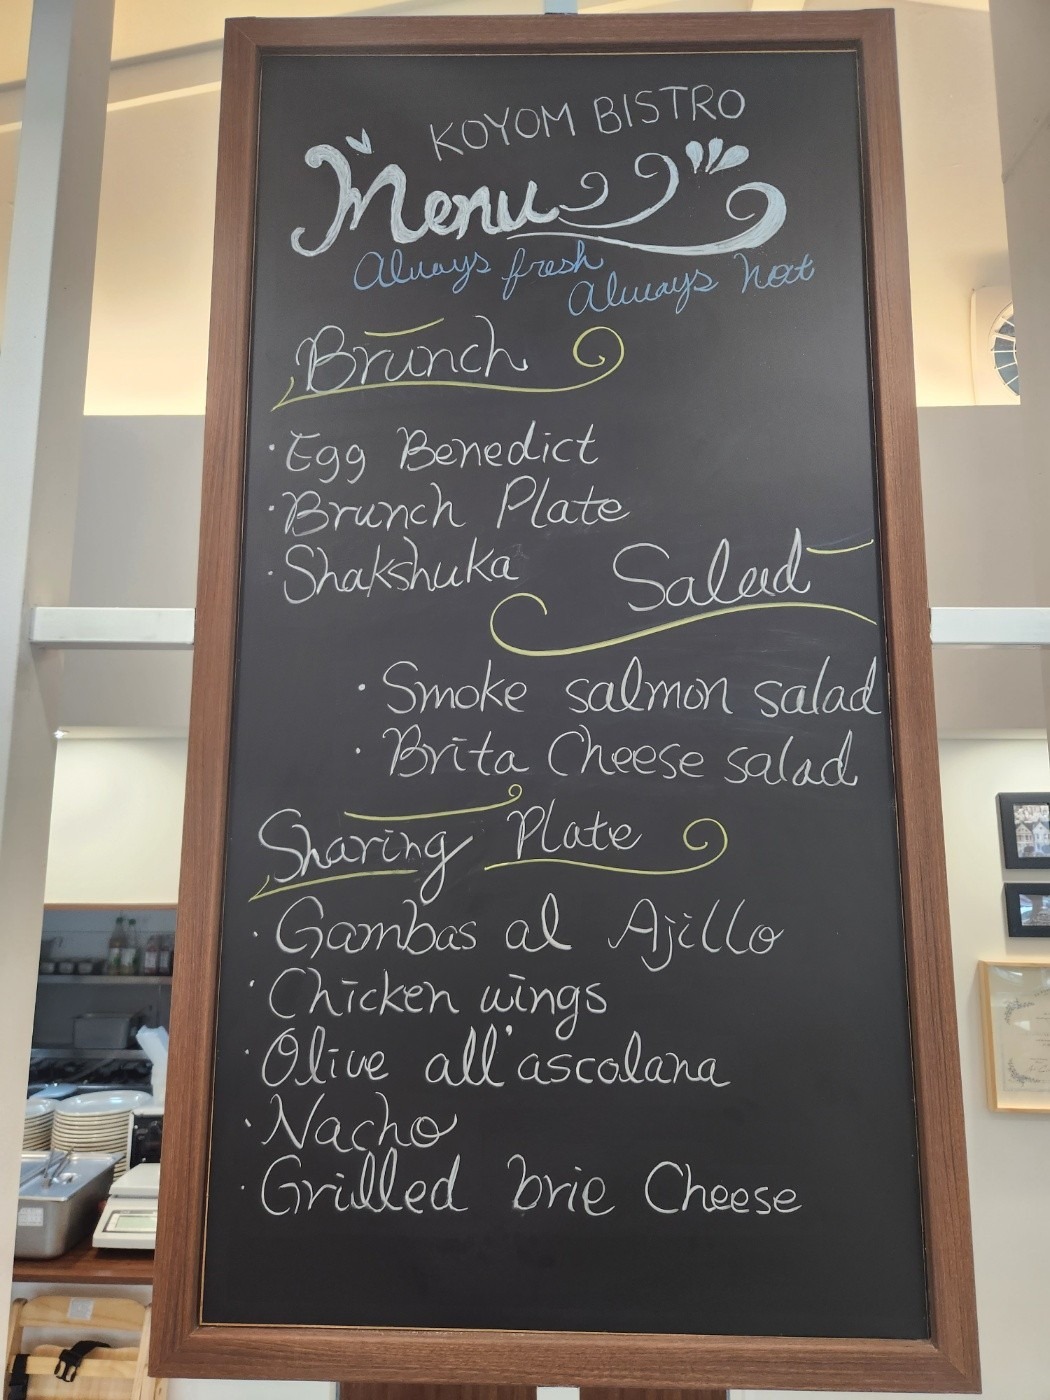 KOYOM BISTRO
Menu
Always fresh
Always hot
Brunch
· Egg Benedict
· Brunch Plate
· Shakshuka
Salad
· Smoke salmon salad
· Brita Cheese salad
Sharing Plate
· Gambas al Ajillo
· Chicken wings
· Olive all'ascolana
· Nacho
· Grilled brie Cheese